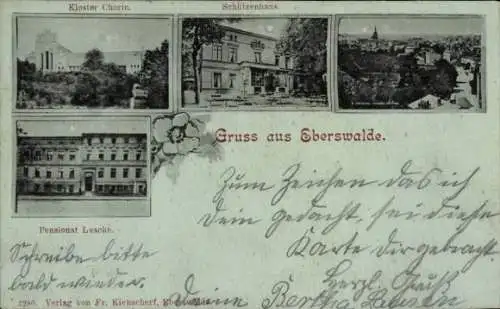 Kloster Chorin.
Schützenhaus.
Gruss aus Eberswalde.
Pensionat Lescke.
Zum Zeichen das ich
Dein gedacht, sei diese
Karte Dir gebracht
Herzl. Gruß
Deine Bertha
Schreibe bitte
bald wieder.
1280. Verlag von Fr. Kienscherf, Eberswalde